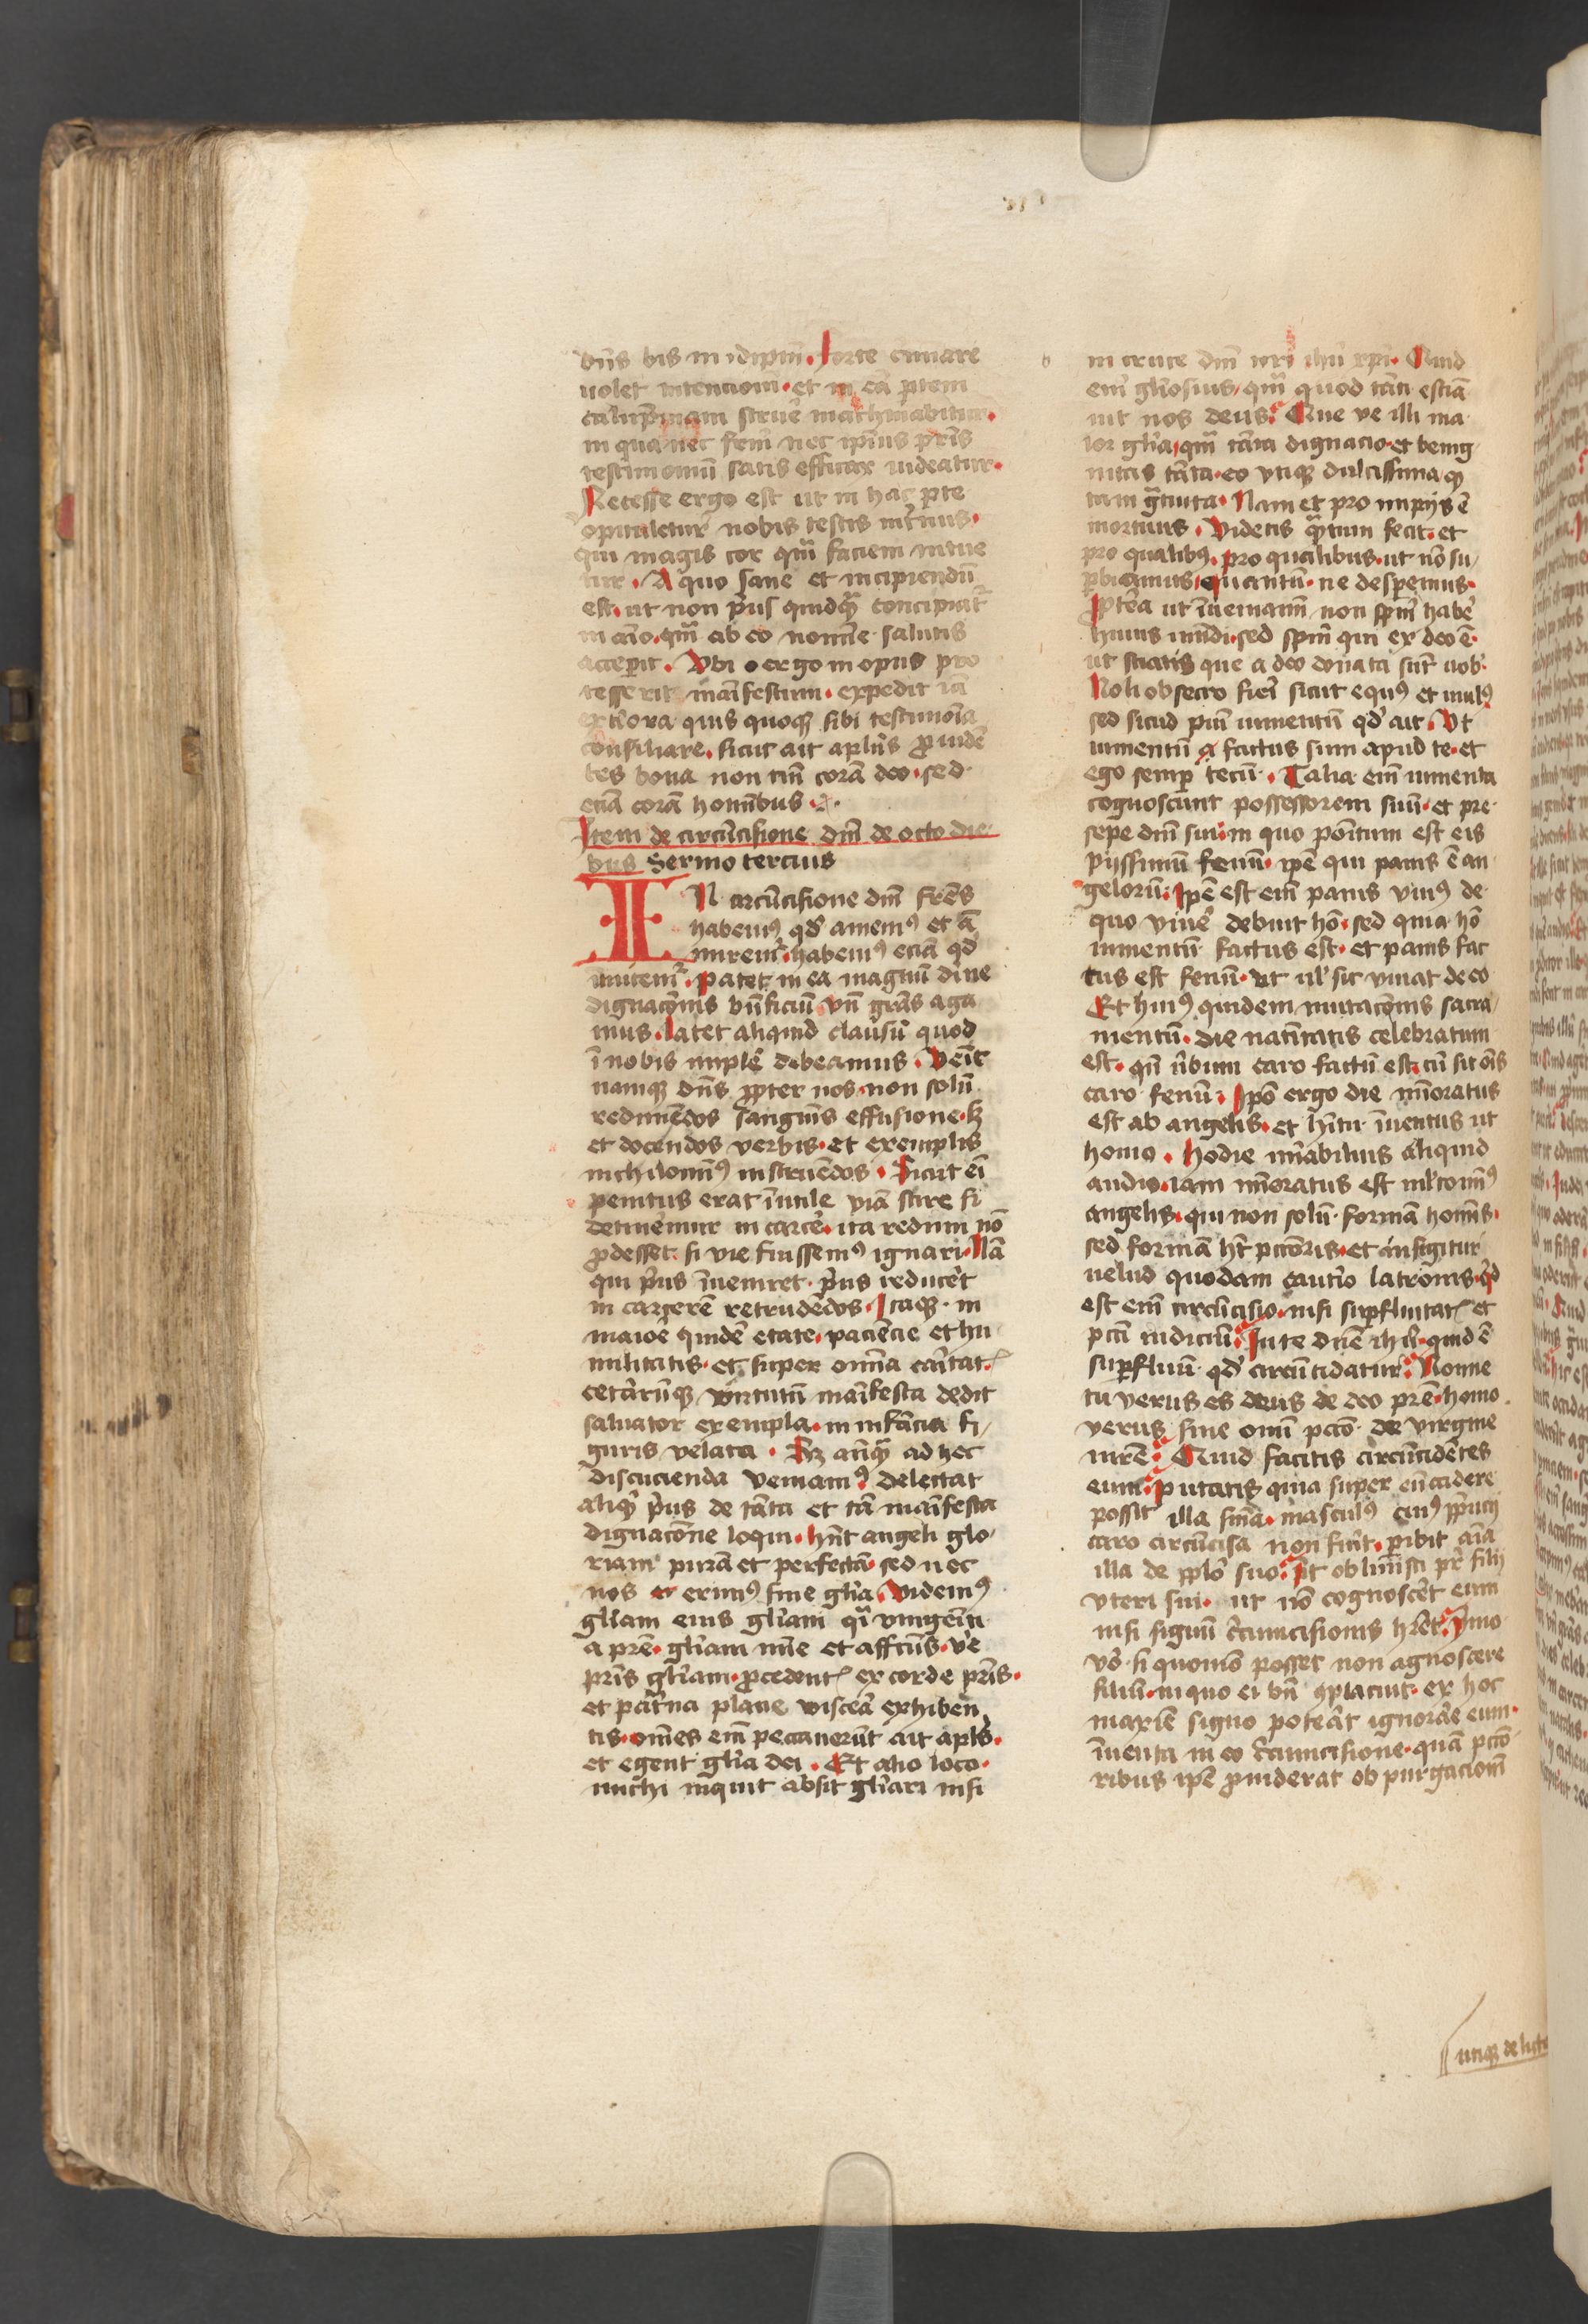 bus bis in idipm̄. Forte cauare
uolet intentiom̄. et in eā ꝑtem
calūpniam struē machinabitur.
in qua nec fem̄ nec ipius pr̄is
testimoniū satis efficax uideatur.
Necesse ergo est ut in hac ꝑte
opituletur nobis testis int̄nus.
qui magis cor qm̄ faciem intue
tur. A quo sane et incipiendū
est. ut non pus quidqͣ concipiat᷑
in aīo. qm̄ ab eo nomīe salutis
acceperit. Vbi ergo in opus pro
cesserit manifestum. expedit iā
ext̄iora quis quoqꝫ sibi testimōia
consiliare. sicut ait aplūs ꝓuidē
tes bona non tm̄ corā deo. sed
eciā corā hominībus.
Item de circūcisione dm̄ de octo die
bus Sermo tercius
IN circūcisione dm̄ frēs
habem⁹ qd̓ amem⁹ et ā
mirem᷑. habem⁹ eciā qd̓
imitem᷑. patet in ea magnū diīne
dignacōnis bn̄ficiū vn̄ grās aga
mus. latet aliquid clausū quod
ī nobis implē debeamus. Venit
namqꝫ dn̄s ꝓpter nos non solū
redimēdos sanguīs effusione. sꝫ
et docendos verbis. et exemplis
nichilomin⁹ instruēdos. Sicut ei
penitus erat īutile viā scire si
detinemur in carcē. ita redimi nō
ꝓdesset. si vie fuissem⁹ ignari. Nā
qui pus īueniret. pus reducēt
in carcerē retrudēdos. Itaqꝫ in
maiorē quidē etate. paciēcie et hu
militatis. et super omīa caritat.
ceterūqꝫ virtutū manīfesta dedit
saluator exempla. in infācia fi
guris velata. Sꝫ anqͣ ad hec
discucienda veniam⁹. delectat
aliqͦ pus de tāta et tā manīfesta
dignacōne loqui. Hn̄t angeli glo
riam purā et perfectā. sed nec
nos ex erim⁹ sine glīa. Videm⁹
gliam eius gliam qͣi vnigeniti
a prē. gliam mīe et affcūs. vē
pris gliam. ꝓcedent̄ ex corde pris.
et pat̄na plane visceā exhiben
tis. omēs em̄ peccauerūt ait apls̄.
et egent glīa dei. Et alio loco.
michi inquit absit gliari nisi
in cruce dm̄ nr̄i ihū xpi. Quid
em̄ gliosius. qm̄ quod tāti estiā
uit nos deus. Que ve illi ma
ior glīa. qm̄ tāta dignacio. et benig
nitas tāta. eo vtiqꝫ dulcissima. qͦ
tam gͣtuita. Nam et pro impijs ē
mortuus. Videtis qͣtum fecit. et
pro qualibꝫ. pro qualibus. ut nō su
perbiamus. quantū. ne desperemus.
Ꝓptea ut īueniam̄ non spm̄ habē
huius mūdi. sed spm̄ qui ex deo ē.
ut sciatis que a deo donata sūt uob̄.
Noli obsecro fieri sicut equ⁹ et mul⁹
sed sicud piū iumentū qd̓ ait. Vt
iumentū factus sum apud te. et
ego semper tecū. Talia em̄ iumenta
cognoscunt possessorem suū. et pre
sepe dm̄ sui. in quo positum est eis
pijssimū fenū. ipē qui panis ē an
gelorū. Ipē est em̄ panis viu⁹ de
quo viuē debuit hō. sed quia hō
iumentū factus est. et panis fac
tus est fenū. ut ul̓ sic viuat de eo
Et hui⁹ quidem mutacōnis sacra
mentū. die natiuitatis celebratum
est. qn̄ v̄bum caro factū est. cū sit oīs
caro fenū. Ipō ergo die mīoratus
est ab angelis. et hītu īuentus ut
homo. Hodie mīabilius aliquid
audio. iam mīoratus est nl̓comin⁹
angelis. qui non solū formā homīs.
sed formā ht̄ pctōris. et infigitur
uelud quodam cautio latronis. qd̓
est em̄ circūcisio. nisi suꝑfluitat᷑ et
pcti indiciū. In te dnē ihū. quid ē
suꝑfluū qd̓ circūcidatur. Nonne
tu verus es deus de deo prē. homo
verus sine omī pctō de virgine
mrē. Quid facitis circūcidētes
eum. putatis quia super eū cadere
possit illa sn̄ia. mascul⁹ cui⁹ ꝓpucij
caro circūcisa non fuīt. ꝑibit aīa
illa de pplō suo. pt obliuisci pr̄ filij
vteri sui. ut nō cognoscēt eum
nisi signū circūcisionis hret. ymo
vō si quomō posset non agnoscere
filiū. in quo ei bn̄ cōplacuit. ex hoc
maxīe signo poteāt ignorāe eum.
īuenta in eo cīcumcisione. quā pctō
ribus ipē ꝓuiderat ob purgaciom̄
utiqꝫ de